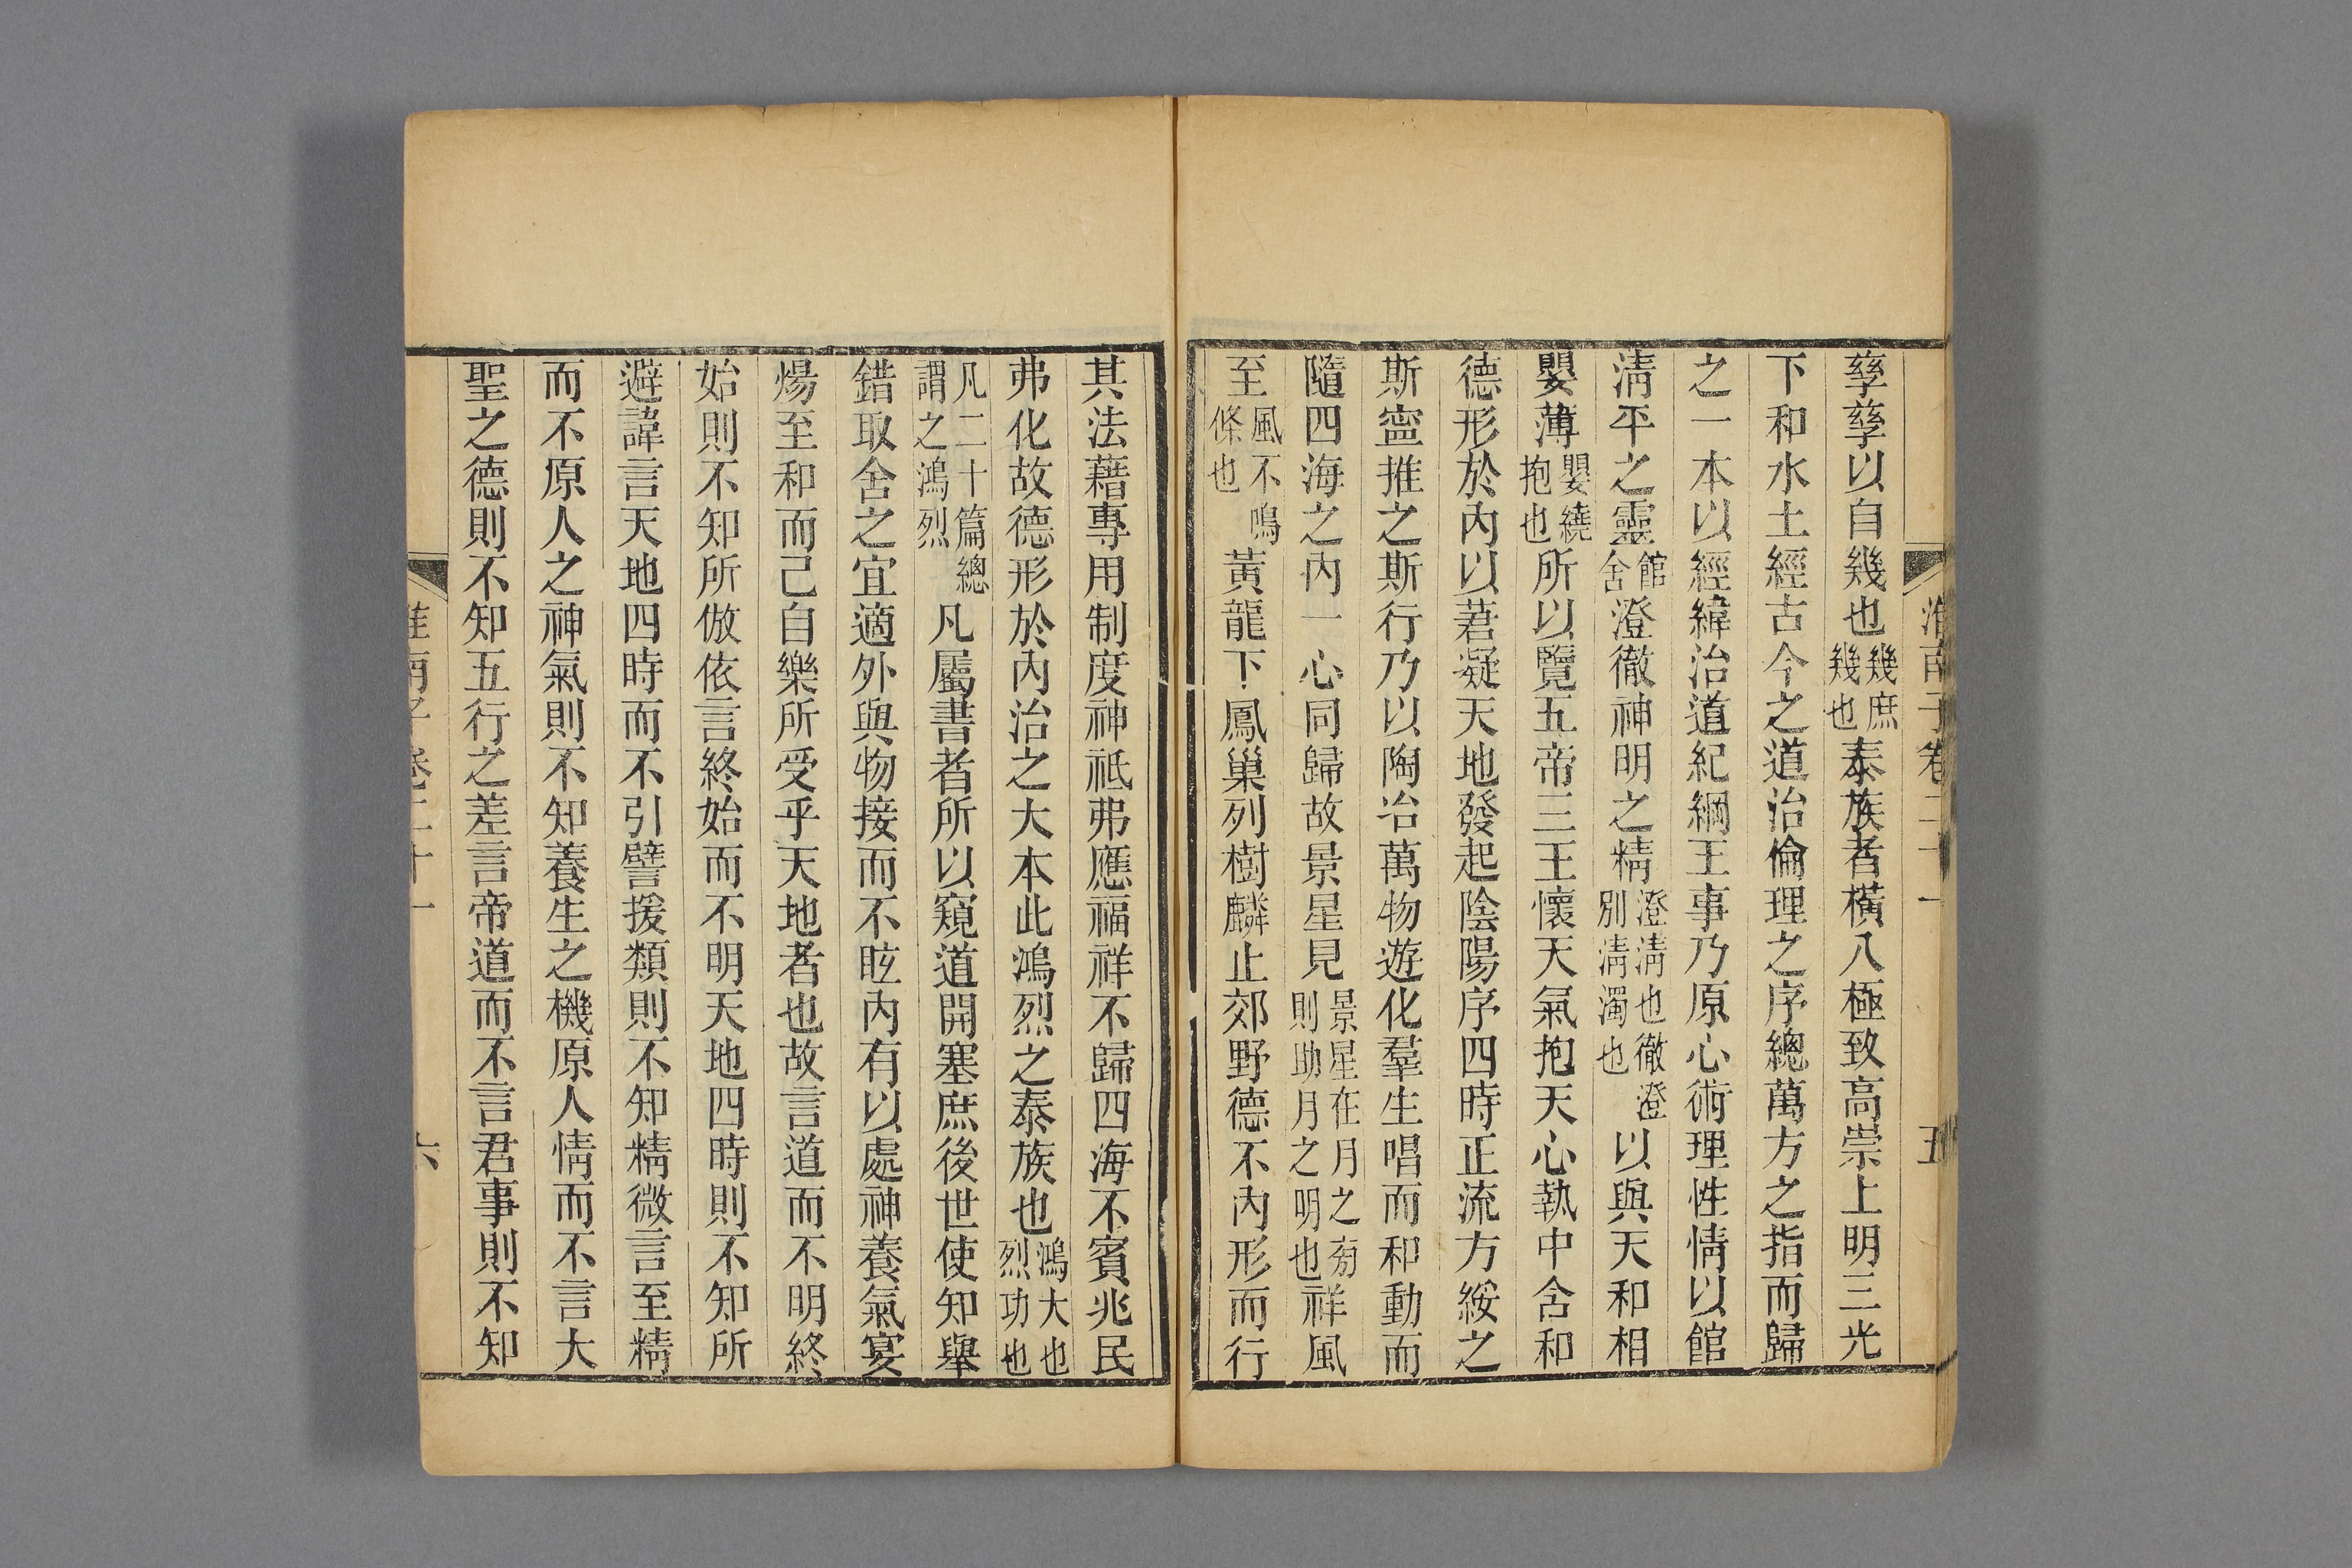 淮南子卷二十一 五
孳孳以自幾也幾庶幾也泰族者橫八極致高崇上明三光
下和水土經古今之道治倫理之序總萬方之指而歸
之一本以經緯治道紀綱王事乃原心術理性情以館
清平之靈館舍澄徹神明之精澄清也徹澄別清濁也以與天和相
嬰薄嬰繞抱也所以覽五帝三王懷天氣抱天心執中含和
德形於內以莙凝天地發起陰陽序四時正流方綏之
斯寍推之斯行乃以陶冶萬物遊化羣生唱而和動而
隨四海之內一心同歸故景星見景星在月之菊則助月之明也祥風
至風不鳴條也黃龍下鳳巢列樹麟止郊野德不內形而行
其法藉專用制度神祇弗應福祥不歸四海不賓兆民
弗化故德形於內治之大本此鴻烈之泰族也鴻大也烈功也
凡二十篇總謂之鴻烈凡屬書者所以窺道開塞庶後世使知舉
錯取舍之宜適外與物接而不眩內有以處神養氣宴
煬至和而己自樂所受乎天地者也故言道而不明終
始則不知所倣依言終始而不明天地四時則不知所
避諱言天地四時而不引譬援類則不知精微言至精
而不原人之神氣則不知養生之機原人情而不言大
聖之德則不知五行之差言帝道而不言君事則不知
淮南子卷二十一 六